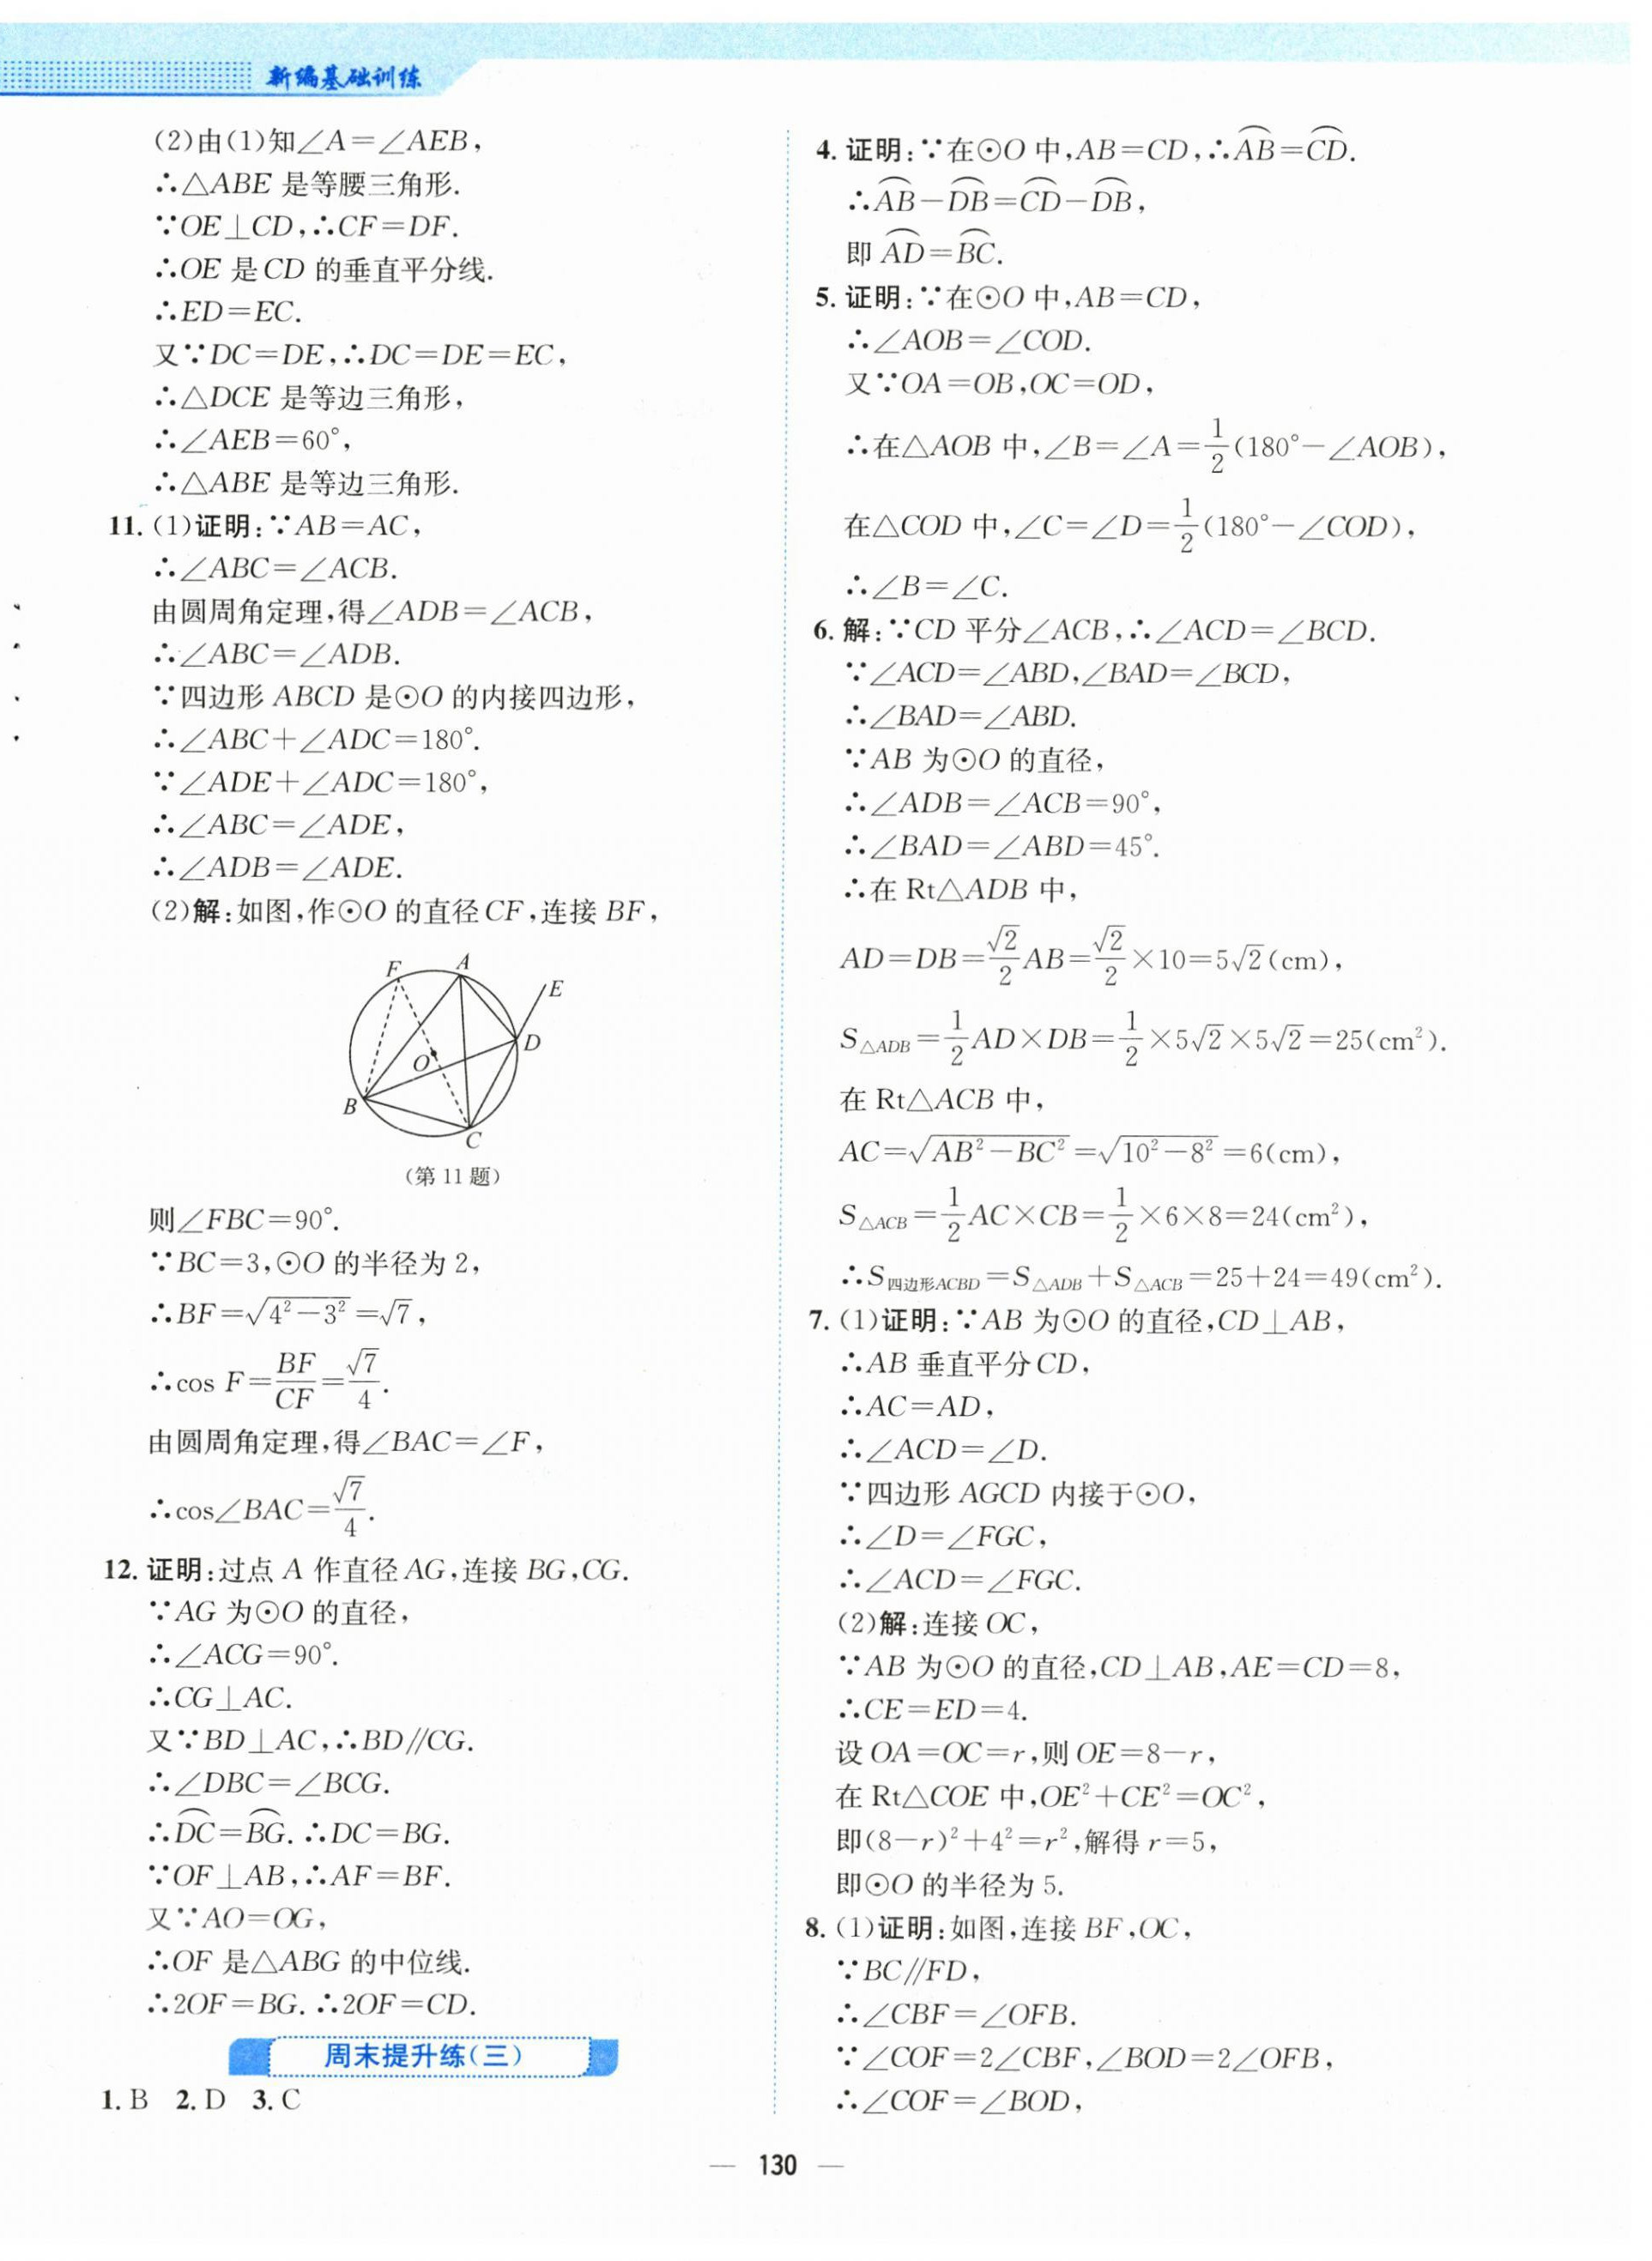 新编基础训练
(2)由(1)知∠A=∠AEB,
∴△ABE 是等腰三角形.
∵OE⊥CD,∴CF=DF.
∴OE 是 CD 的垂直平分线.
∴ED=EC.
又∵DC=DE,∴DC=DE=EC,
∴△DCE 是等边三角形,
∴∠AEB=60°,
∴△ABE 是等边三角形.
11. (1)证明:∵AB=AC,
∴∠ABC=∠ACB.
由圆周角定理,得∠ADB=∠ACB,
∴∠ABC=∠ADB.
∵四边形 ABCD 是⊙O 的内接四边形,
∴∠ABC+∠ADC=180°.
∵∠ADE+∠ADC=180°,
∴∠ABC=∠ADE,
∴∠ADB=∠ADE.
(2)解:如图,作⊙O 的直径 CF,连接 BF,
F A
E
D
O
B
C
(第 11 题)
则∠FBC=90°.
∵BC=3,⊙O 的半径为 2,
∴BF=√(4²-3²)=√7,
∴cos F=BF/CF=√7/4.
由圆周角定理,得∠BAC=∠F,
∴cos∠BAC=√7/4.
12. 证明:过点 A 作直径 AG,连接 BG,CG.
∵AG 为⊙O 的直径,
∴∠ACG=90°.
∴CG⊥AC.
又∵BD⊥AC,∴BD∥CG.
∴∠DBC=∠BCG.
∴⌒DC=⌒BG. ∴DC=BG.
∵OF⊥AB,∴AF=BF.
又∵AO=OG,
∴OF 是△ABG 的中位线.
∴2OF=BG. ∴2OF=CD.
周末提升练(三)
1. B 2. D 3. C
4. 证明:∵在⊙O 中,AB=CD,∴⌒AB=⌒CD.
∴⌒AB-⌒DB=⌒CD-⌒DB,
即 ⌒AD=⌒BC.
5. 证明:∵在⊙O 中,AB=CD,
∴∠AOB=∠COD.
又∵OA=OB,OC=OD,
∴在△AOB 中,∠B=∠A=1/2(180°-∠AOB),
在△COD 中,∠C=∠D=1/2(180°-∠COD),
∴∠B=∠C.
6. 解:∵CD 平分∠ACB,∴∠ACD=∠BCD.
∵∠ACD=∠ABD,∠BAD=∠BCD,
∴∠BAD=∠ABD.
∵AB 为⊙O 的直径,
∴∠ADB=∠ACB=90°,
∴∠BAD=∠ABD=45°.
∴在 Rt△ADB 中,
AD=DB=√2/2 AB=√2/2×10=5√2(cm),
S△ADB=1/2 AD×DB=1/2×5√2×5√2=25(cm²).
在 Rt△ACB 中,
AC=√(AB²-BC²)=√(10²-8²)=6(cm),
S△ACB=1/2 AC×CB=1/2×6×8=24(cm²),
∴S四边形ACBD=S△ADB+S△ACB=25+24=49(cm²).
7. (1)证明:∵AB 为⊙O 的直径,CD⊥AB,
∴AB 垂直平分 CD,
∴AC=AD,
∴∠ACD=∠D.
∵四边形 AGCD 内接于⊙O,
∴∠D=∠FGC,
∴∠ACD=∠FGC.
(2)解:连接 OC,
∵AB 为⊙O 的直径,CD⊥AB,AE=CD=8,
∴CE=ED=4.
设 OA=OC=r,则 OE=8-r,
在 Rt△COE 中,OE²+CE²=OC²,
即(8-r)²+4²=r²,解得 r=5,
即⊙O 的半径为 5.
8. (1)证明:如图,连接 BF,OC,
∵BC∥FD,
∴∠CBF=∠OFB.
∵∠COF=2∠CBF,∠BOD=2∠OFB,
∴∠COF=∠BOD,
— 130 —